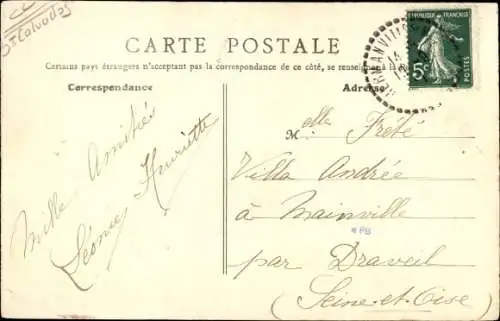 Calvados
CARTE POSTALE
Certains pays étrangers n'acceptant pas la correspondance de ce côté, se renseigner à la
Correspondance
Adresse
RÉPUBLIQUE FRANÇAISE
5c
POSTES
HERMANVILLE
Mille Amitiés
Léonie Henriette
Melle Frété
Villa Andrée
à Mainville
par Draveil
(Seine-et-Oise)
PB